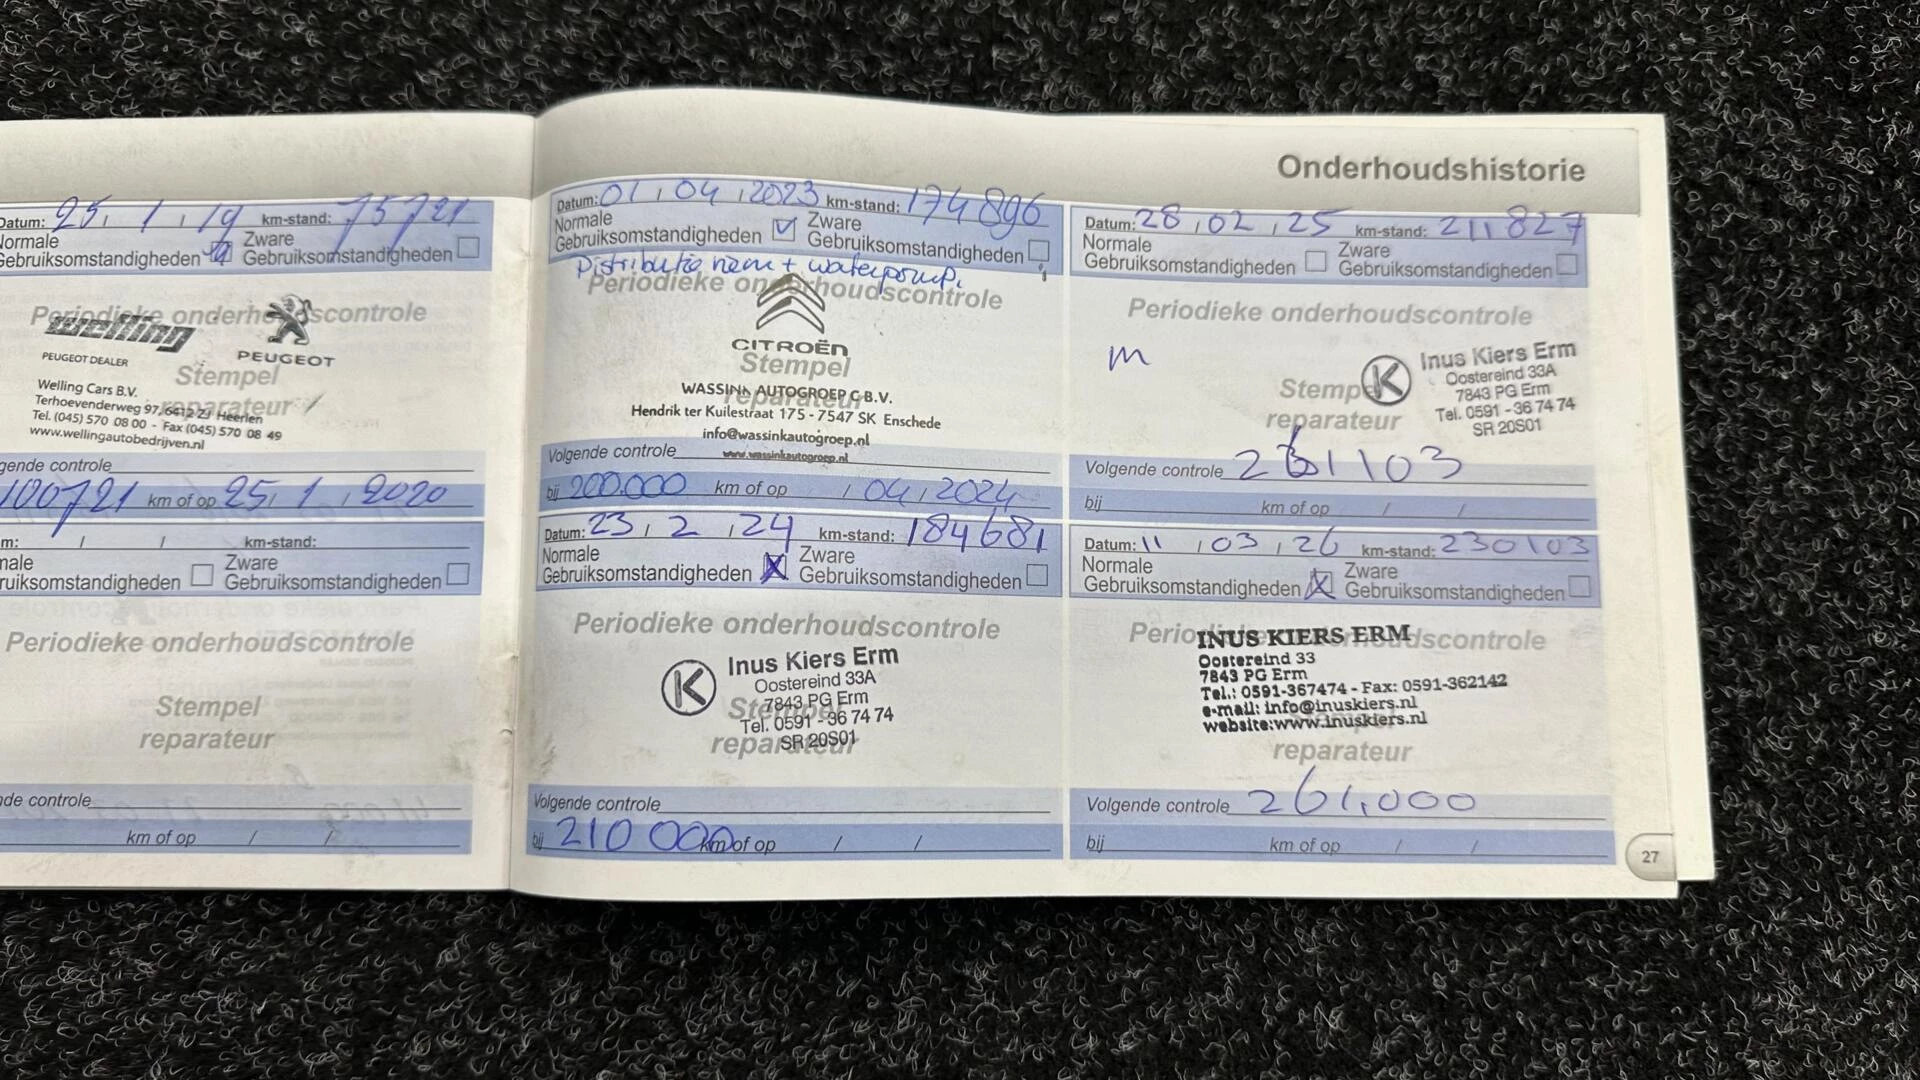 Onderhoudshistorie
Datum: 25 / 1 / 19 km-stand: 75721
Normale
Gebruiksomstandigheden
Zware
Gebruiksomstandigheden
Periodieke onderhoudscontrole
welling
PEUGEOT DEALER
PEUGEOT
Stempel
reparateur
Welling Cars B.V.
Terhoevenderweg 97, 6412 ZJ Heerlen
Tel. (045) 570 08 00 - Fax (045) 570 08 49
www.wellingautobedrijven.nl
gende controle
100721 km of op 25 / 1 / 2020
m: / / km-stand:
male
ruiksomstandigheden
Zware
Gebruiksomstandigheden
Periodieke onderhoudscontrole
Stempel
reparateur
de controle
km of op / /
Datum: 01 / 04 / 2023 km-stand: 174896
Normale
Gebruiksomstandigheden
Zware
Gebruiksomstandigheden
Distributie riem + waterpomp.
Periodieke onderhoudscontrole
CITROËN
Stempel
reparateur
WASSINK AUTOGROEP C B.V.
Hendrik ter Kuilestraat 175 - 7547 SK Enschede
info@wassinkautogroep.nl
www.wassinkautogroep.nl
Volgende controle
bij 200.000 km of op / 04 / 2024
Datum: 23 / 2 / 24 km-stand: 184681
Normale
Gebruiksomstandigheden
Zware
Gebruiksomstandigheden
Periodieke onderhoudscontrole
K
Inus Kiers Erm
Oostereind 33A
7843 PG Erm
Tel. 0591 - 36 74 74
SR 20S01
Stempel
reparateur
Volgende controle
bij 210 000 km of op / /
Datum: 28 / 02 / 25 km-stand: 211827
Normale
Gebruiksomstandigheden
Zware
Gebruiksomstandigheden
Periodieke onderhoudscontrole
m
K
Inus Kiers Erm
Oostereind 33A
7843 PG Erm
Tel. 0591 - 36 74 74
SR 20S01
Stempel
reparateur
Volgende controle
bij km of op / /
Datum: 11 / 03 / 26 km-stand: 230103
Normale
Gebruiksomstandigheden
Zware
Gebruiksomstandigheden
Periodieke onderhoudscontrole
INUS KIERS ERM
Oostereind 33
7843 PG Erm
Tel.: 0591-367474 - Fax: 0591-362142
e-mail: info@inuskiers.nl
website:www.inuskiers.nl
reparateur
Volgende controle 261.000
bij km of op / /
27